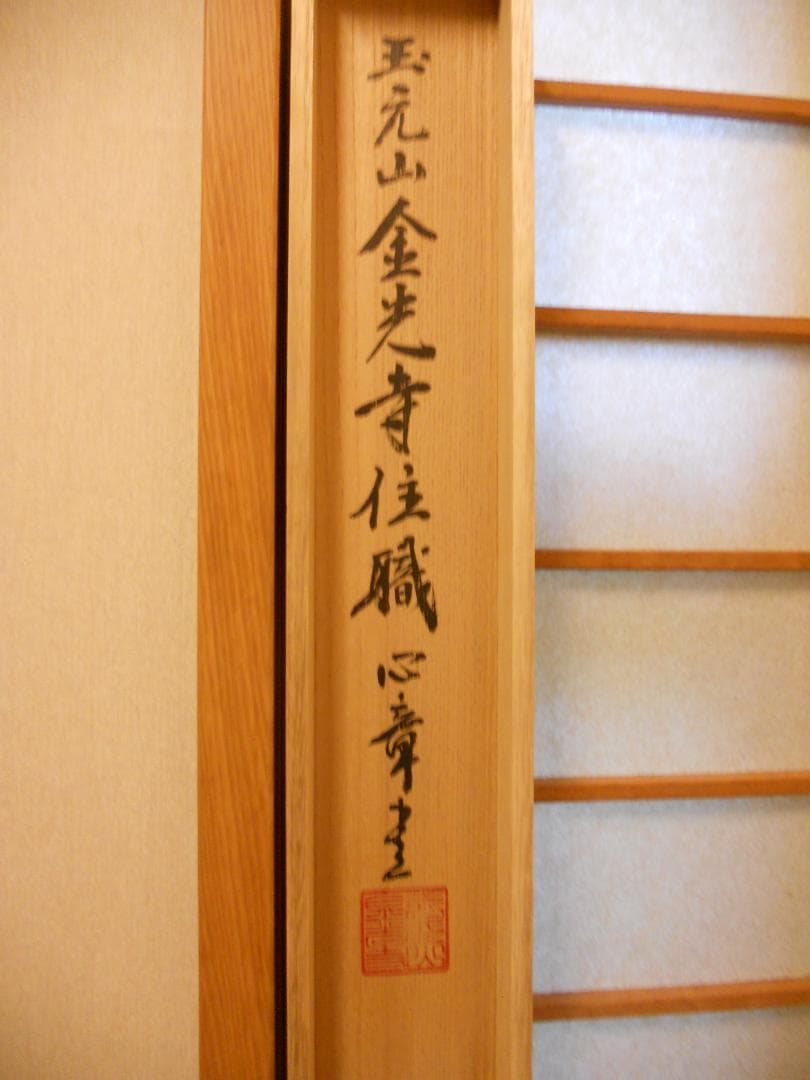 玉元山金光寺住職 心章書